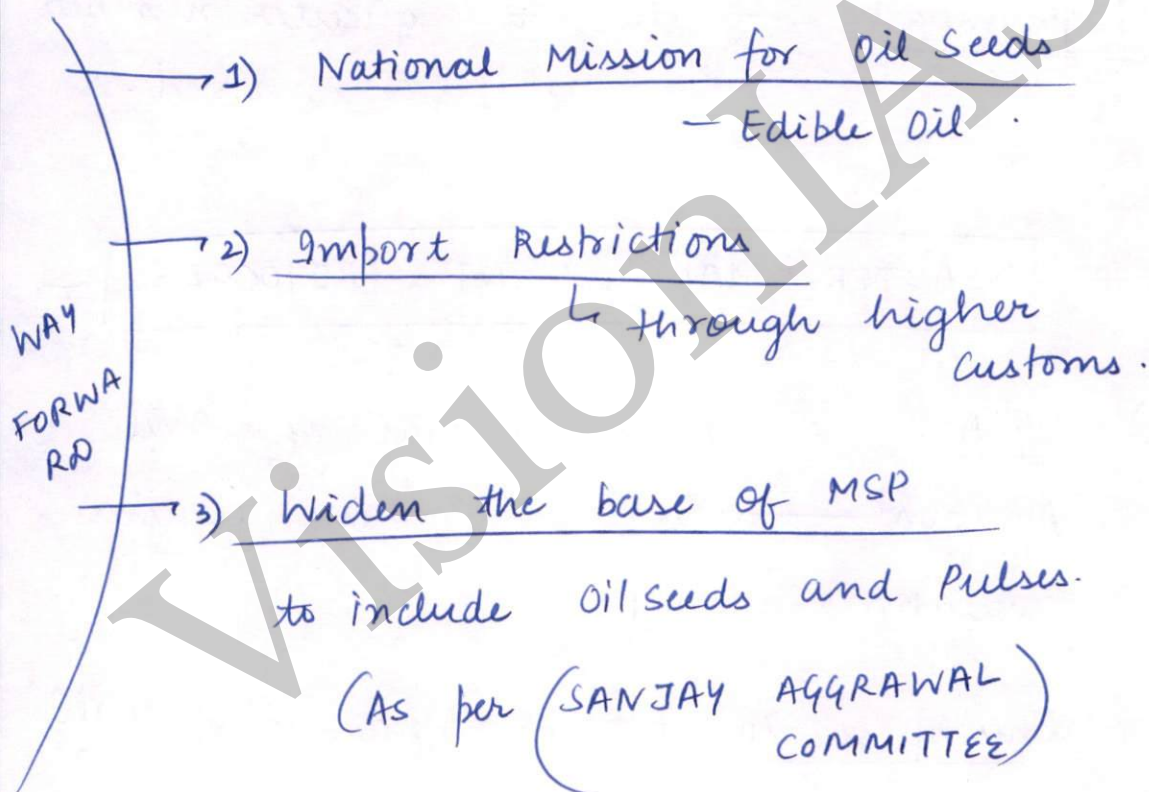 1) National Mission for Oil Seeds
- Edible Oil.
2) Import Restrictions
↳ through higher
customs.
WAY
FORWA
RD
3) Widen the base of MSP
to include Oil seeds and Pulses.
(As per (SANJAY AGGRAWAL
COMMITTEE)
VisionIAS